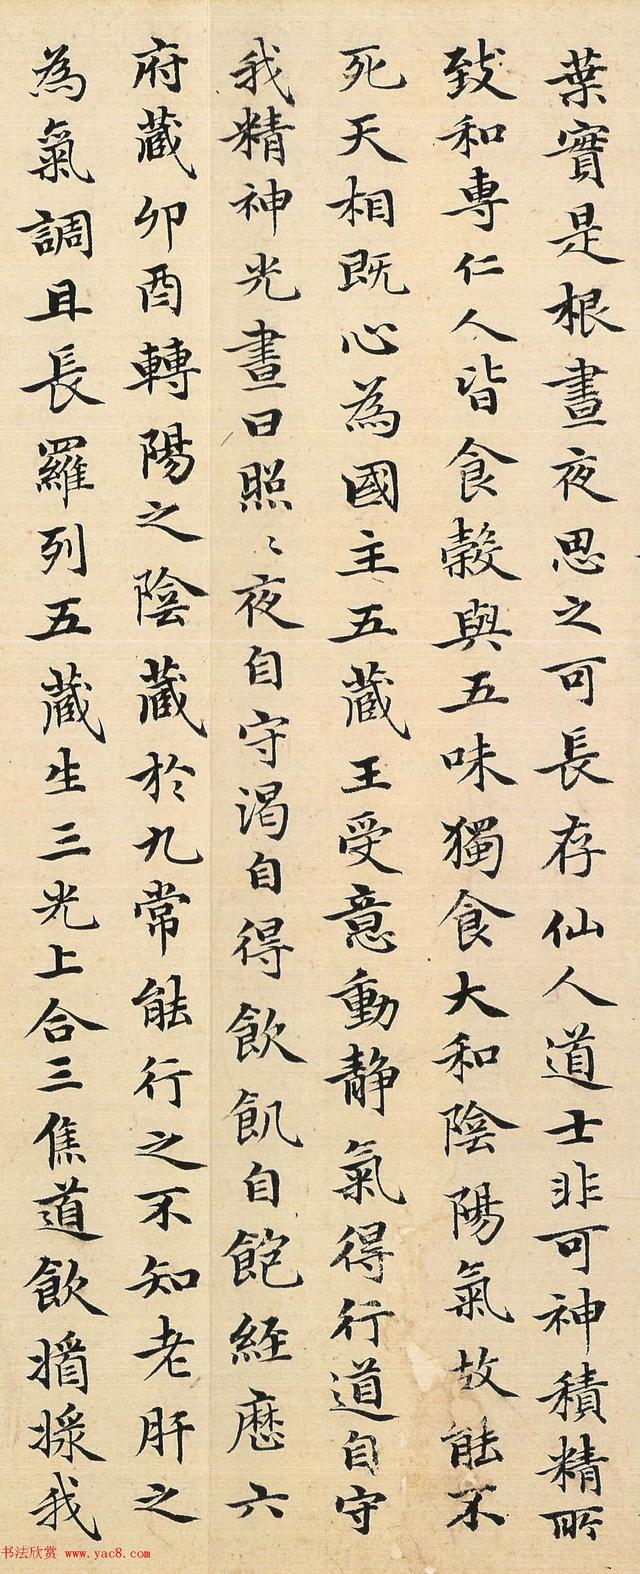 葉實是根晝夜思之可長存仙人道士非可神積精所
致和專仁人皆食穀與五味獨食大和陰陽氣故能不
死天相既心為國主五藏王受意動靜氣得行道自守
我精神光晝日照〻夜自守渴自得飲飢自飽經歷六
府藏卯酉轉陽之陰藏於九常能行之不知老肝之
為氣調且長羅列五藏生三光上合三焦道飲 我
书法欣赏 www.yac8.com